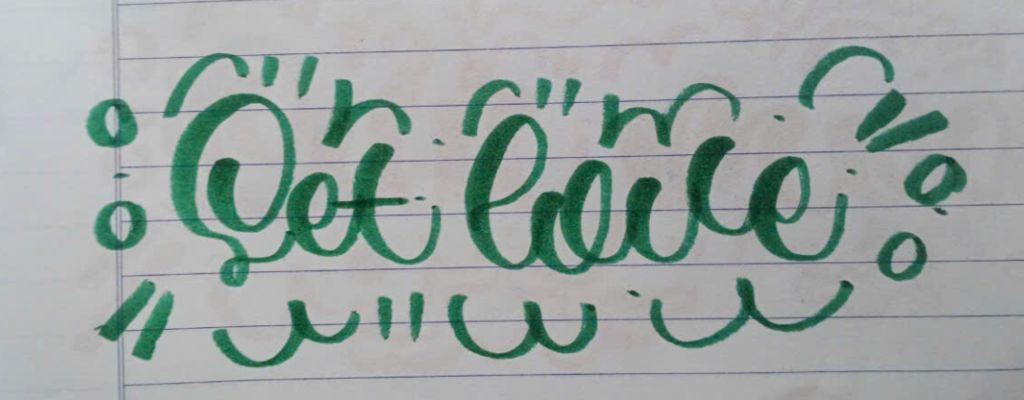 Get love